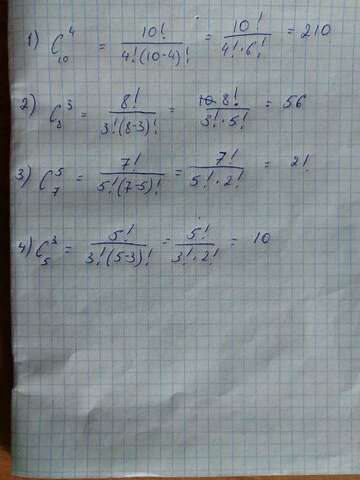 1) C₁₀⁴ = 10! / 4!(10-4)! = 10! / 4!·6! = 210
2) C₈³ = 8! / 3!(8-3)! = 8! / 3!·5! = 56
3) C₇⁵ = 7! / 5!(7-5)! = 7! / 5!·2! = 2!
4) C₅³ = 5! / 3!(5-3)! = 5! / 3!·2! = 10